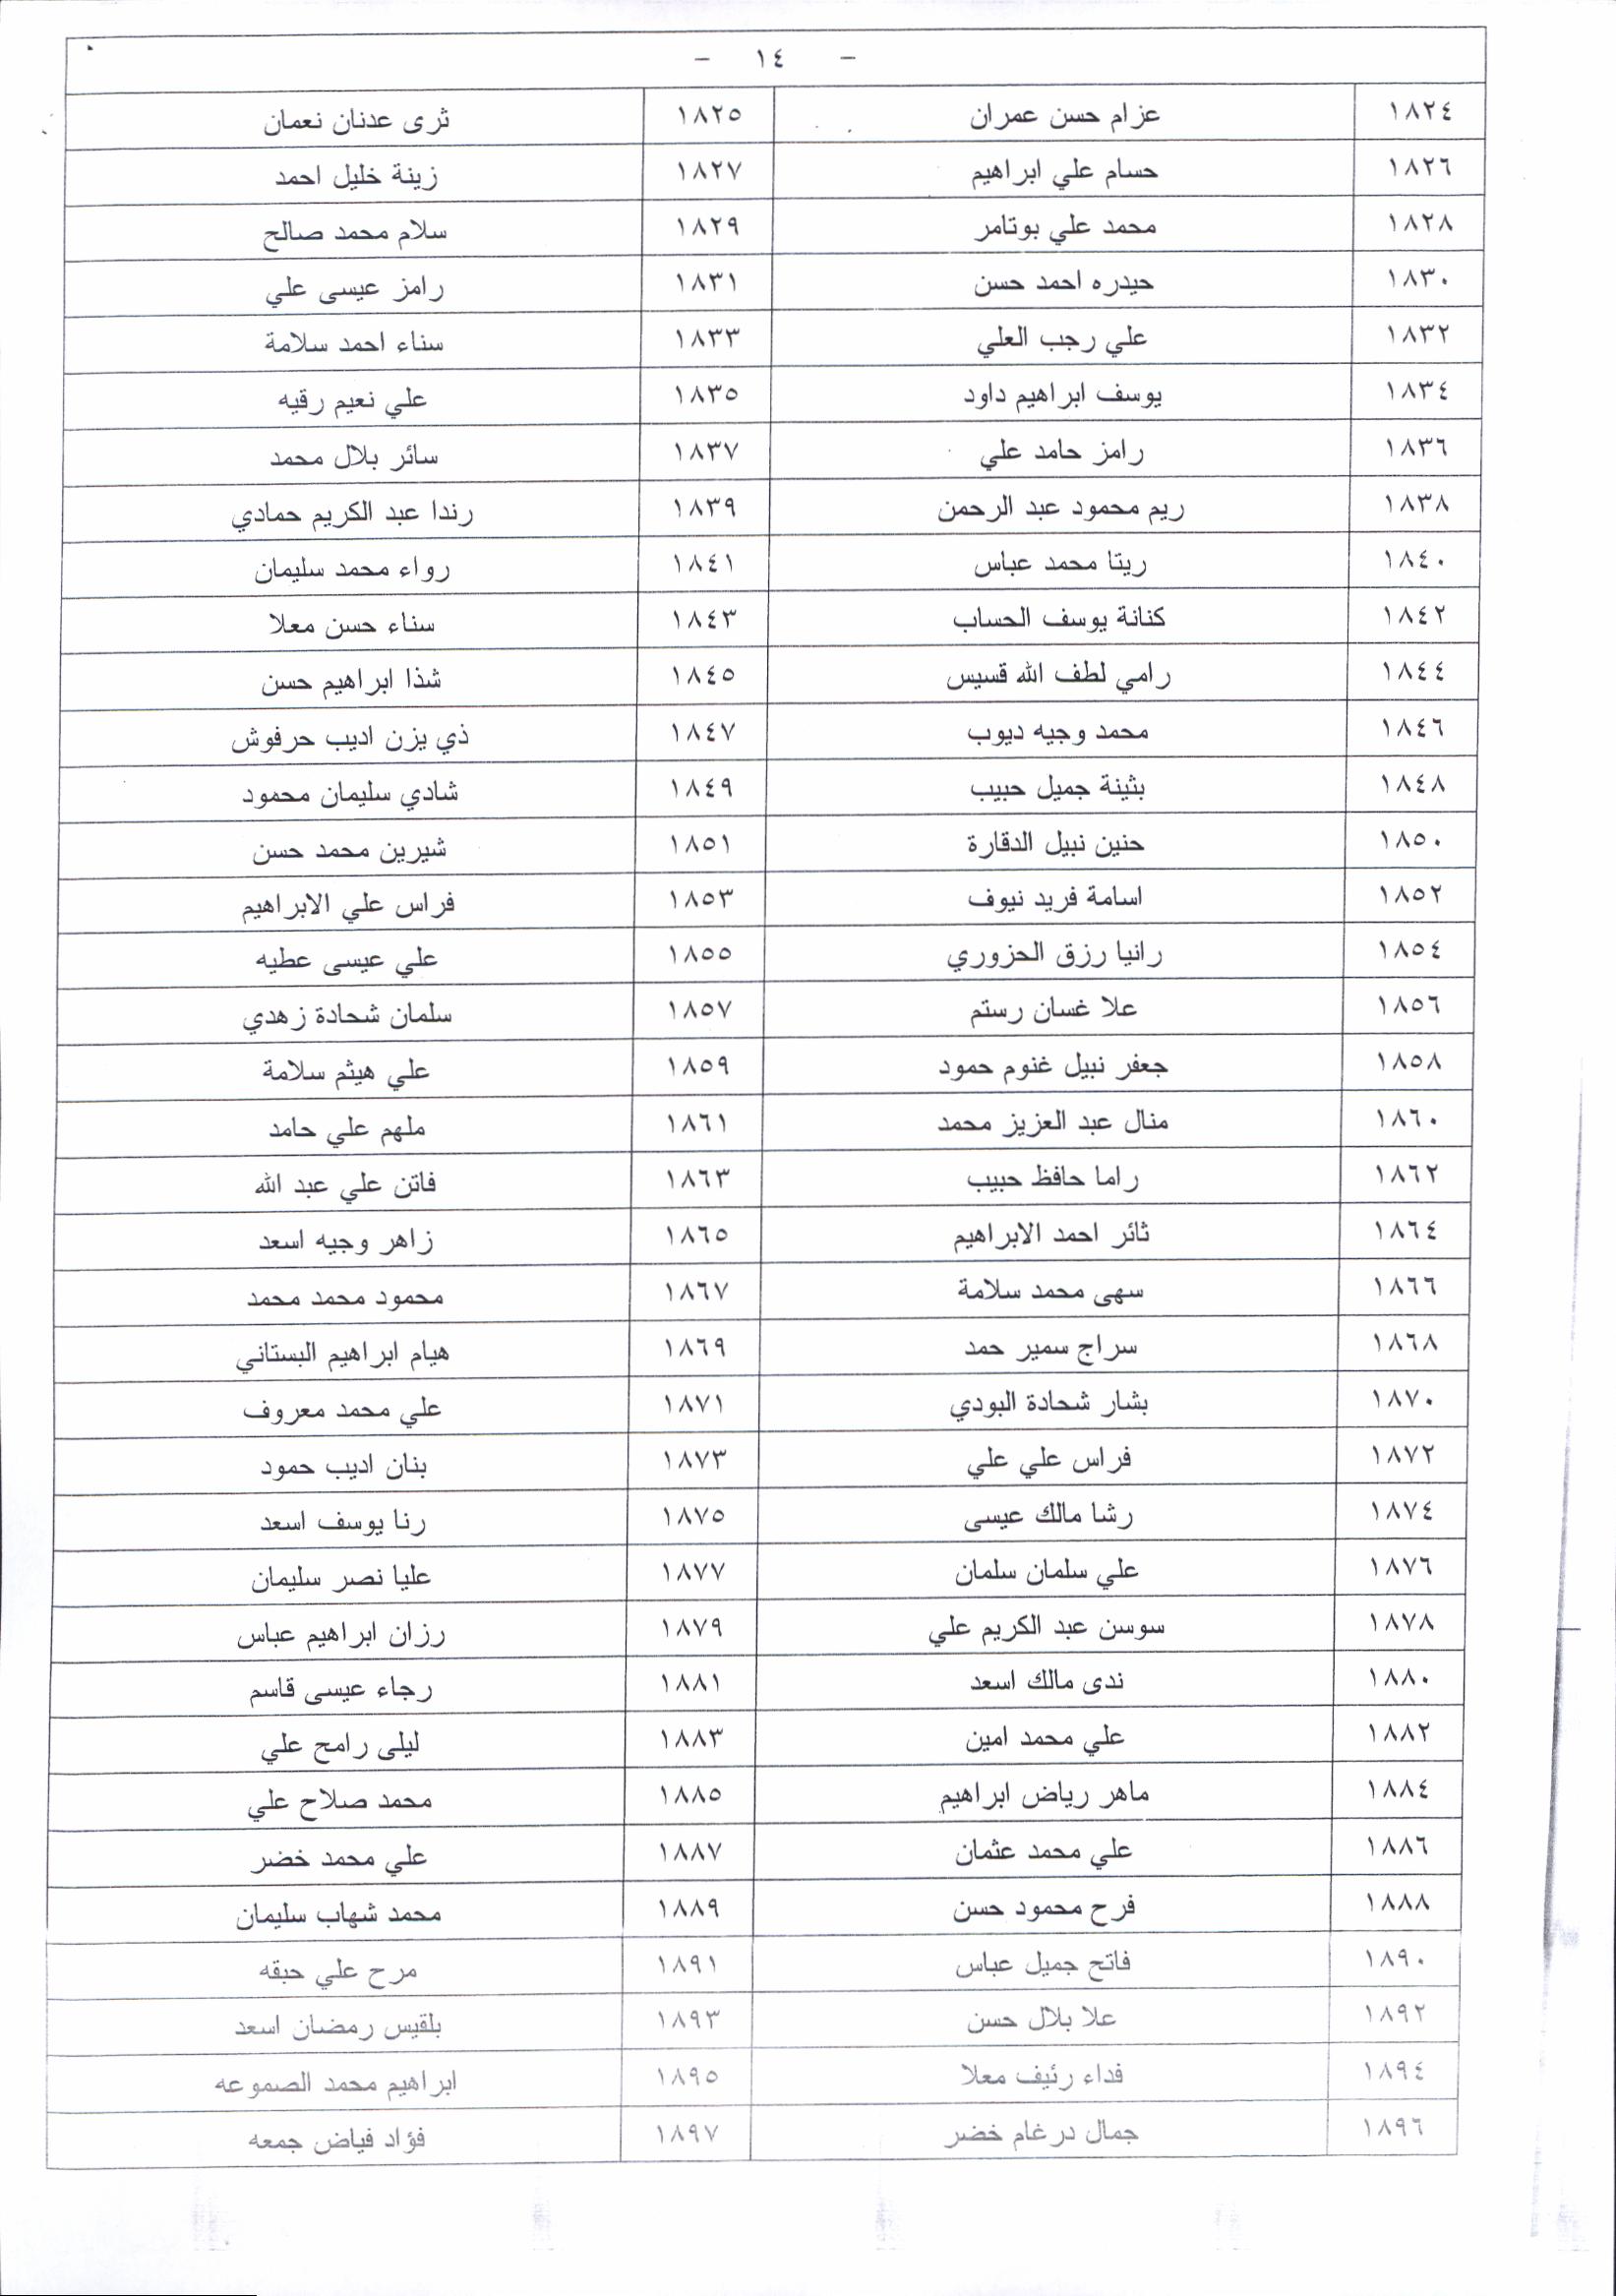 - ١٤ -
١٨٢٤ عزام حسن عمران ١٨٢٥ ثرى عدنان نعمان
١٨٢٦ حسام علي ابراهيم ١٨٢٧ زينة خليل احمد
١٨٢٨ محمد علي بوتامر ١٨٢٩ سلام محمد صالح
١٨٣٠ حيدره احمد حسن ١٨٣١ رامز عيسى علي
١٨٣٢ علي رجب العلي ١٨٣٣ سناء احمد سلامة
١٨٣٤ يوسف ابراهيم داود ١٨٣٥ علي نعيم رقيه
١٨٣٦ رامز حامد علي ١٨٣٧ سائر بلال محمد
١٨٣٨ ريم محمود عبد الرحمن ١٨٣٩ رندا عبد الكريم حمادي
١٨٤٠ ريتا محمد عباس ١٨٤١ رواء محمد سليمان
١٨٤٢ كنانة يوسف الحساب ١٨٤٣ سناء حسن معلا
١٨٤٤ رامي لطف الله قسيس ١٨٤٥ شذا ابراهيم حسن
١٨٤٦ محمد وجيه ديوب ١٨٤٧ ذي يزن اديب حرفوش
١٨٤٨ بثينة جميل حبيب ١٨٤٩ شادي سليمان محمود
١٨٥٠ حنين نبيل الدقارة ١٨٥١ شيرين محمد حسن
١٨٥٢ اسامة فريد نيوف ١٨٥٣ فراس علي الابراهيم
١٨٥٤ رانيا رزق الحزوري ١٨٥٥ علي عيسى عطيه
١٨٥٦ علا غسان رستم ١٨٥٧ سلمان شحادة زهدي
١٨٥٨ جعفر نبيل غنوم حمود ١٨٥٩ علي هيثم سلامة
١٨٦٠ منال عبد العزيز محمد ١٨٦١ ملهم علي حامد
١٨٦٢ راما حافظ حبيب ١٨٦٣ فاتن علي عبد الله
١٨٦٤ ثائر احمد الابراهيم ١٨٦٥ زاهر وجيه اسعد
١٨٦٦ سهى محمد سلامة ١٨٦٧ محمود محمد محمد
١٨٦٨ سراج سمير حمد ١٨٦٩ هيام ابراهيم البستاني
١٨٧٠ بشار شحادة البودي ١٨٧١ علي محمد معروف
١٨٧٢ فراس علي علي ١٨٧٣ بنان اديب حمود
١٨٧٤ رشا مالك عيسى ١٨٧٥ رنا يوسف اسعد
١٨٧٦ علي سلمان سلمان ١٨٧٧ عليا نصر سليمان
١٨٧٨ سوسن عبد الكريم علي ١٨٧٩ رزان ابراهيم عباس
١٨٨٠ ندى مالك اسعد ١٨٨١ رجاء عيسى قاسم
١٨٨٢ علي محمد امين ١٨٨٣ ليلى رامح علي
١٨٨٤ ماهر رياض ابراهيم ١٨٨٥ محمد صلاح علي
١٨٨٦ علي محمد عثمان ١٨٨٧ علي محمد خضر
١٨٨٨ فرح محمود حسن ١٨٨٩ محمد شهاب سليمان
١٨٩٠ فاتح جميل عباس ١٨٩١ مرح علي حبقه
١٨٩٢ علا بلال حسن ١٨٩٣ بلقيس رمضان اسعد
١٨٩٤ فداء رئيف معلا ١٨٩٥ ابراهيم محمد الصموعه
١٨٩٦ جمال درغام خضر ١٨٩٧ فؤاد فياض جمعه